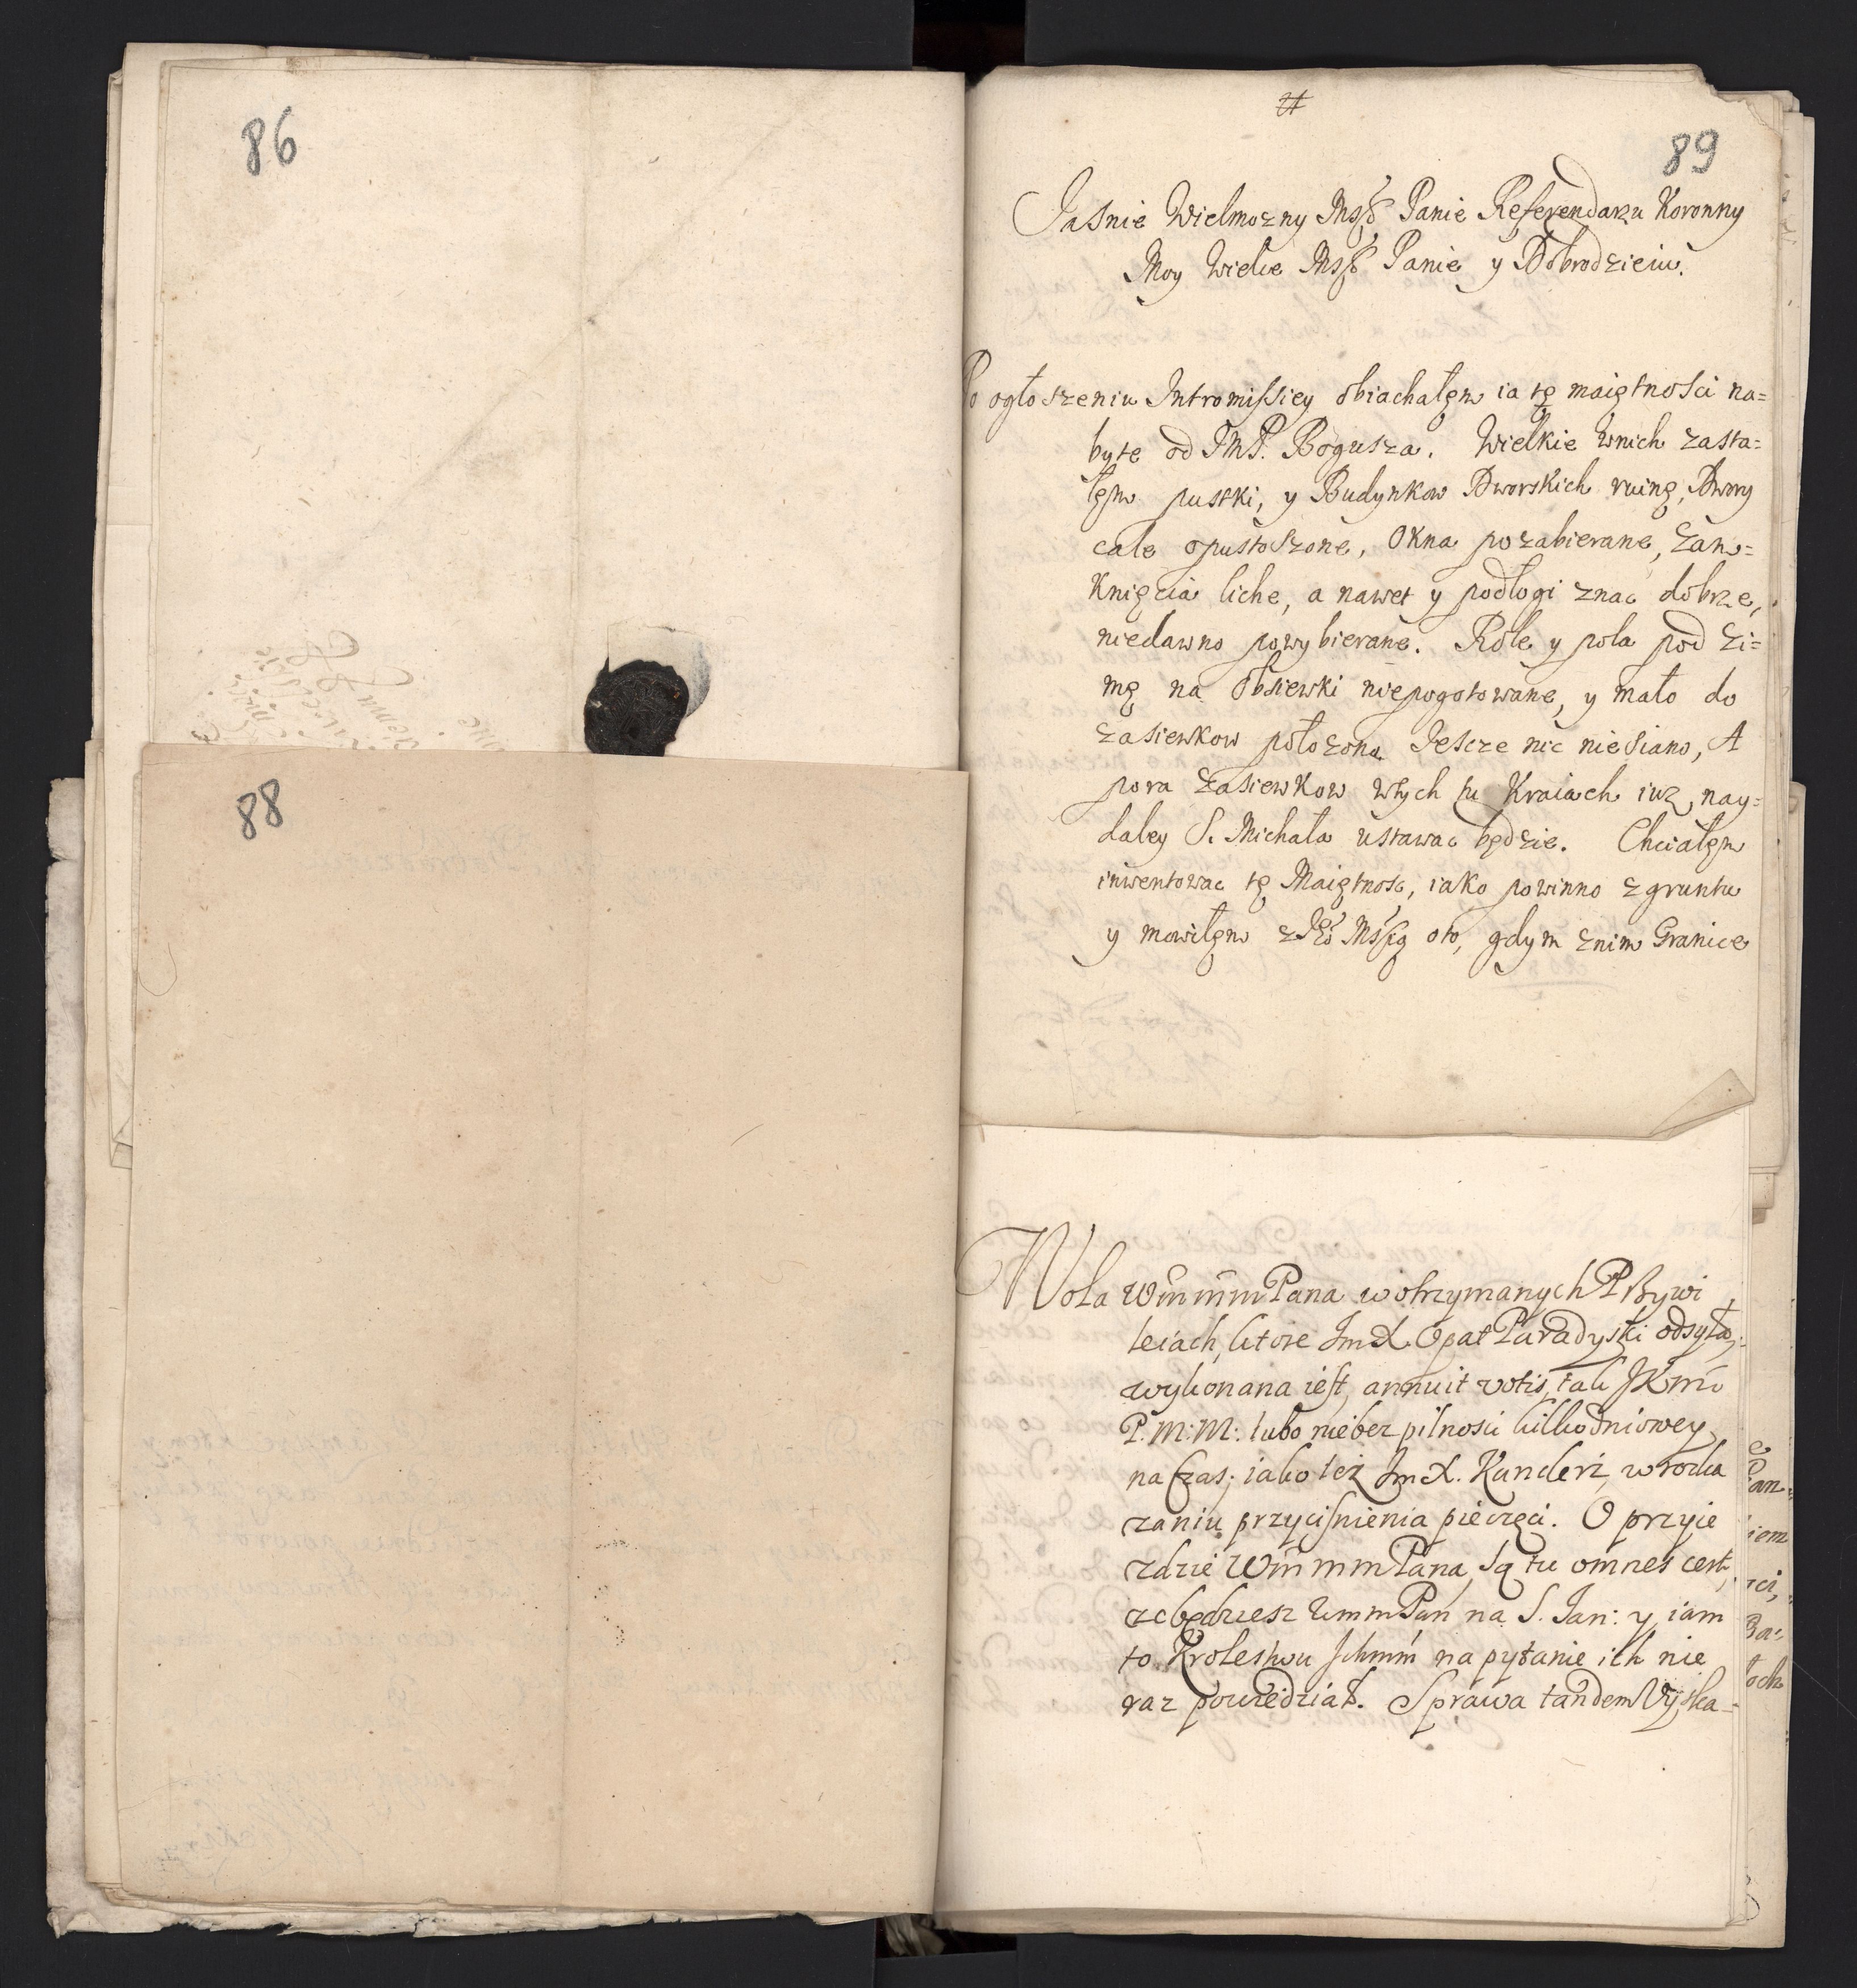 86
88
89
Jasnie Wielmozny Mssٜ Panie Referendarzu Koronny
Moy Wielce Panie y Dobrodzieiu.
Po ogłoszeniu Intromissiey obiachałęm ia tę maiętności na=
byte od JMP. Bogusza. Wielkie wnich zasta=
łęm pustki, y Budynkow Dworskich ruinę, Dwory
cale opustoszone, Okna pozabierane, Zam=
knięcia liche, a nawet y podłogi znac dobrze,
niedawno powybierane. Role y pola pod Zi=
mę na obsiewki niepogotowane, y mało do
zasiewkow położona. Jescze nic niesiano, A
pora Zasiewkow wtych tu Kraiach iuz nay=
daley S. Michała ustawac będzie. Chciałęm
inwentowac tę Maiętnosc, iako powinno zgruntu
y mowiłęm oto, gdym znim Granice
Wola Wm mm Pana wotrzymanych PRzywi
leiach, ktore Jmx Opat Paradyski odsyła,
wykonana iest, annuit votis, tak JKmc
P. M: M: lubo niebez pilnosci kilkodniowey
na czas, iako tez Jmx. Kanclerz, wrozka
zaniu przycisnienia pieczęci. O przyie
zdzie Wm mm Pana, są tu omnes certi,
ze będziesz Wmm Pan na S. Jan: y iam
to Krolestwu Ichmm na pytanie ich nie
raz powiedział. Sprawa tandem Wyska=